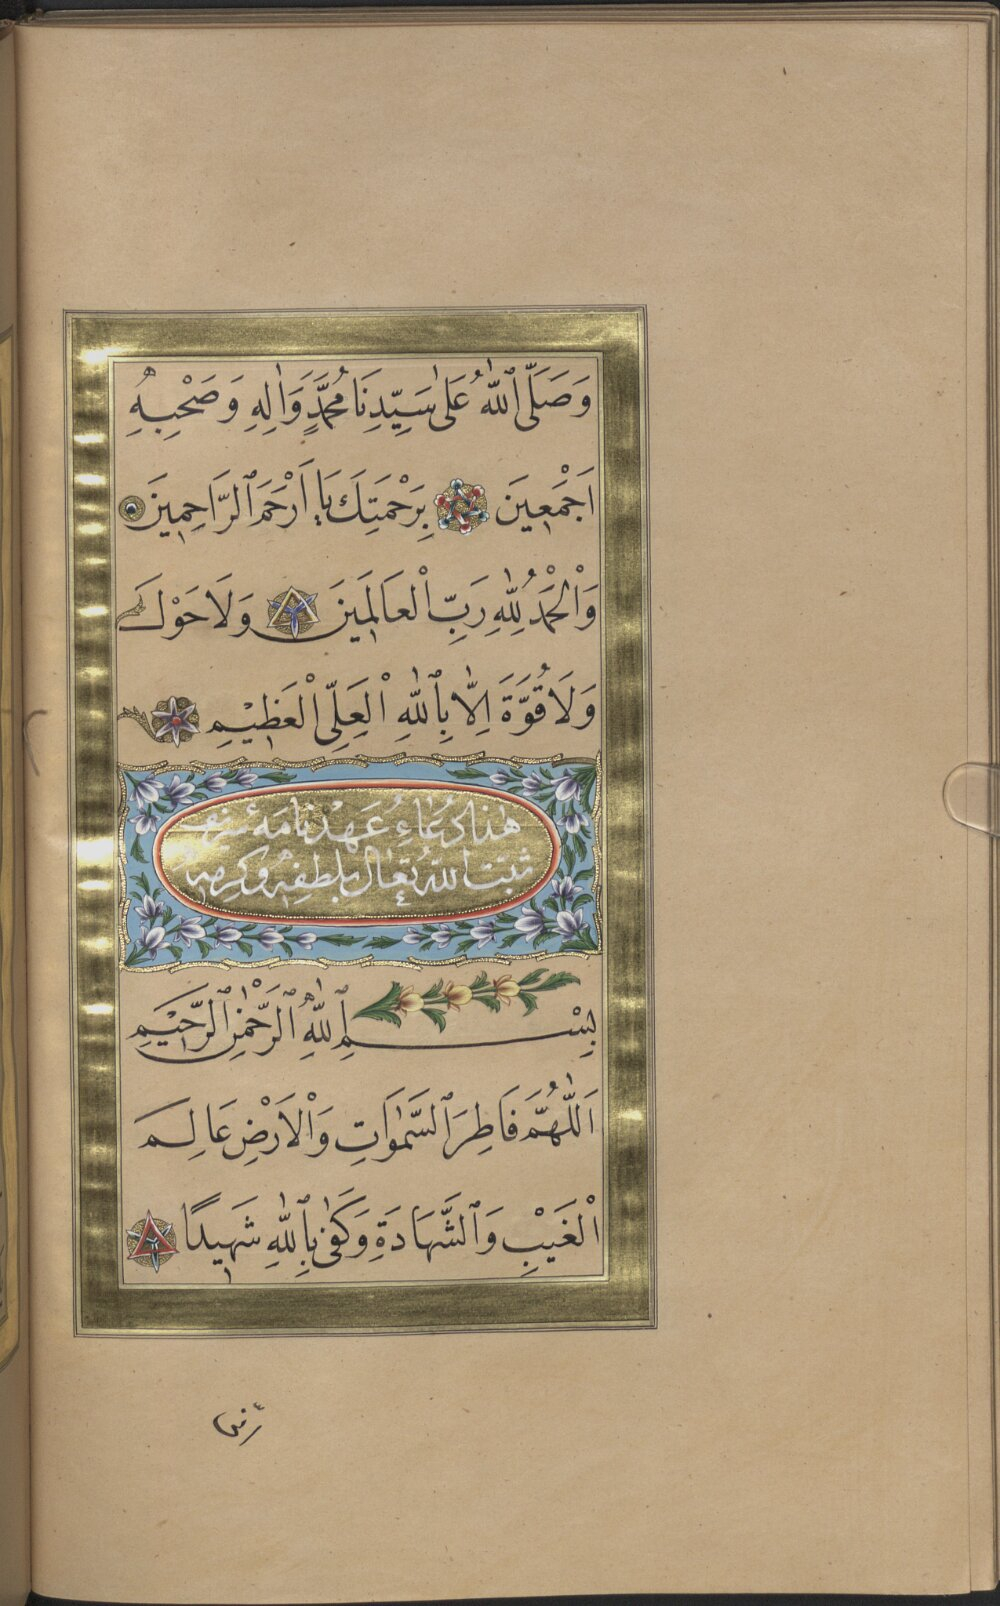 وَصَلَّى ٱللّٰهُ عَلٰى سَيِّدِنَا مُحَمَّدٍ وَاٰلِهِ وَصَحْبِهِ
اَجْمَعِينَ بِرَحْمَتِكَ يَا اَرْحَمَ ٱلرَّاحِمِينَ
وَالْحَمْدُ لِلّٰهِ رَبِّ الْعَالَمِينَ وَلَا حَوْلَ
وَلَا قُوَّةَ اِلَّا بِٱللّٰهِ الْعَلِىِّ الْعَظِيمِ
هٰذَا دُعَاءِ عَهْدْنَامَهٔ شريف
ثبتنا الله تعالى بلطفه وكرمه
بِسْمِ ٱللّٰهِ ٱلرَّحْمٰنِ ٱلرَّحِيمِ
اَللّٰهُمَّ فَاطِرَ ٱلسَّمٰوَاتِ وَالْاَرْضِ عَالِمَ
الْغَيْبِ وَٱلشَّهَادَةِ وَكَفٰى بِٱللّٰهِ شَهِيدًا